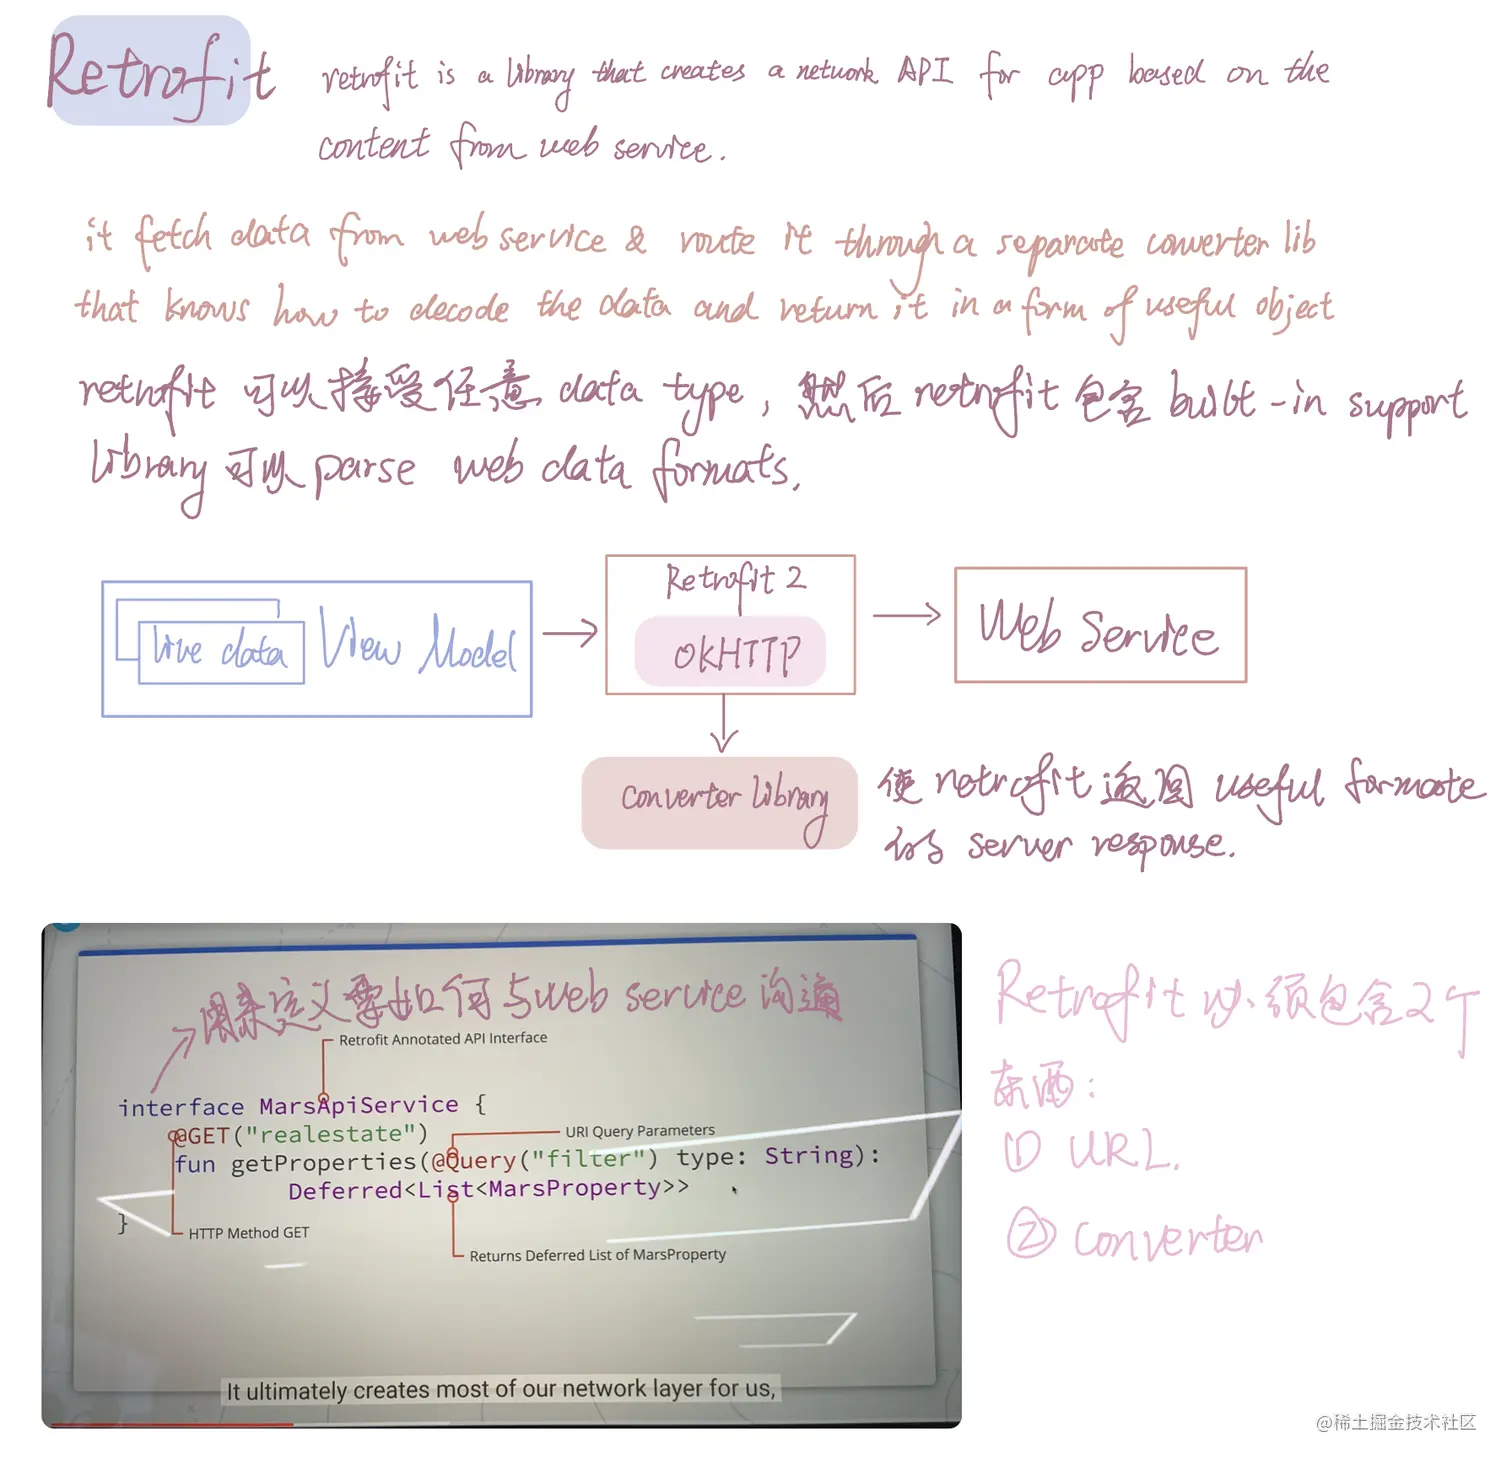 Retrofit
retrofit is a library that creates a network API for app based on the
content from web service.
it fetch data from web service & route it through a separate converter lib
that knows how to decode the data and return it in a form of useful object
retrofit 可以接受任意 data type, 然后 retrofit 包含 built-in support
library 可以 parse web data formats.
live data
View Model
Retrofit 2
OKHTTP
Web Service
Converter Library
使 retrofit 返回 useful formate
的 server response.
用来定义要如何与 web service 沟通
Retrofit Annotated API Interface
interface MarsApiService {
@GET("realestate")
URI Query Parameters
fun getProperties(@Query("filter") type: String):
Deferred<List<MarsProperty>>
}
HTTP Method GET
Returns Deferred List of MarsProperty
It ultimately creates most of our network layer for us,
Retrofit 必须包含2个
东西:
① URL.
② Converter
@稀土掘金技术社区